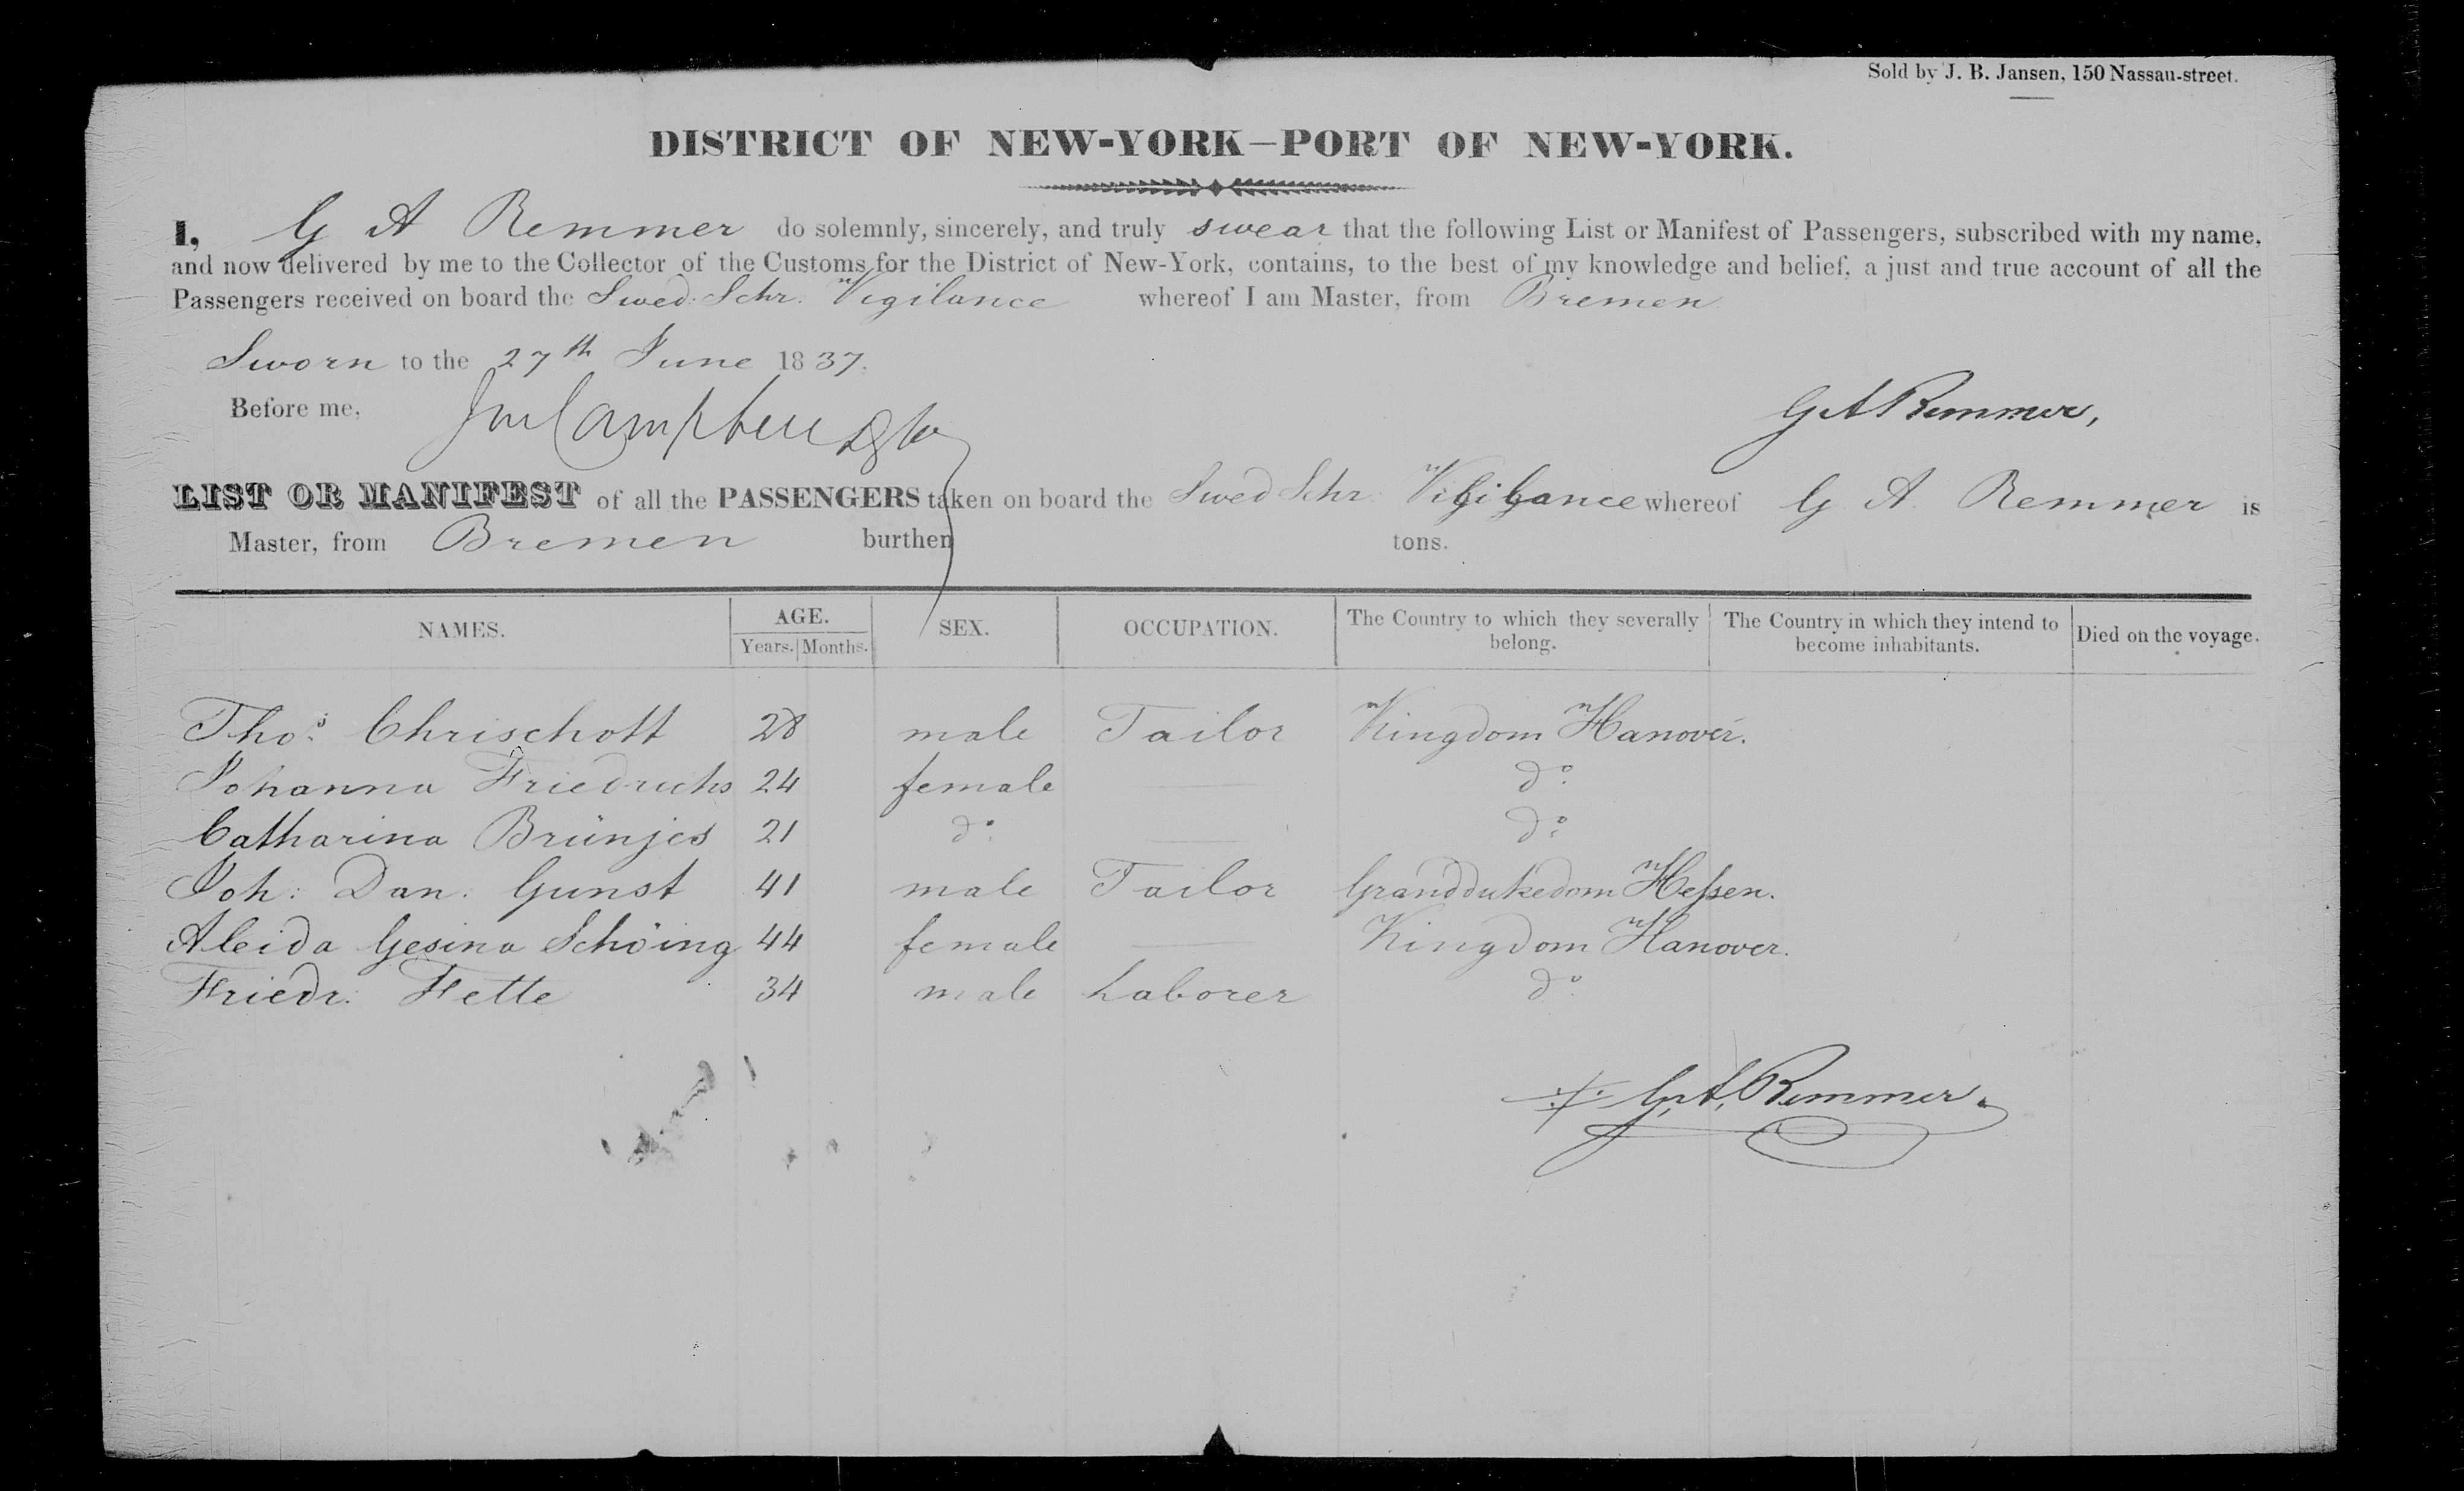 Sold by J. B. Jansen, 150 Nassau-street.
DISTRICT OF NEW-YORK—PORT OF NEW-YORK.
I, G A Remmer do solemnly, sincerely, and truly swear that the following List or Manifest of Passengers, subscribed with my name,
and now delivered by me to the Collector of the Customs for the District of New-York, contains, to the best of my knowledge and belief, a just and true account of all the
Passengers received on board the Swed: Schr. Vigilance whereof I am Master, from Bremen
Sworn to the 27th June 1837.
Before me,
G A Remmer,
LIST OR MANIFEST of all the PASSENGERS taken on board the Swed Schr Vigilance whereof G A. Remmer is
Master, from Bremen burthen tons.
NAMES. AGE. Years. Months. SEX. OCCUPATION. The Country to which they severally belong. The Country in which they intend to become inhabitants. Died on the voyage.
Thos. Chrischott 28 male Tailor Kingdom Hanover.
Johanna Friedrichs 24 female — do.
Catharina Brünjes 21 do. — do.
Joh: Dan: Gunst 41 male Tailor Granddukedom Hessen.
Aleida Gesina Schöing 44 female — Kingdom Hanover.
Friedr: Fette 34 male Laborer do.
G. A. Remmer.